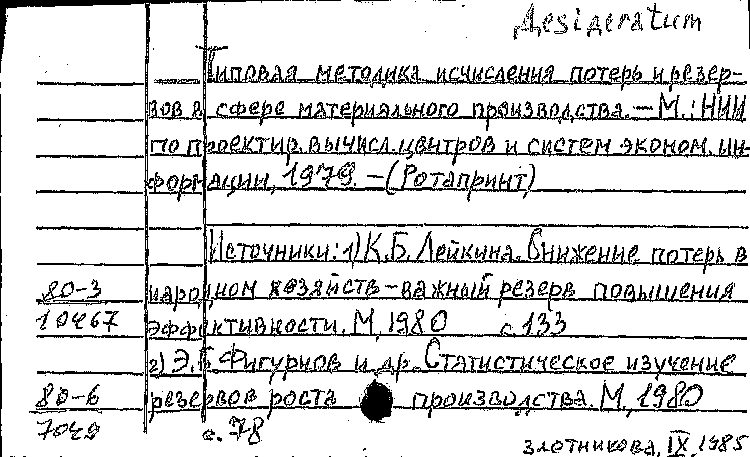 Desiderатum
Типовая методика исчисления потерь и резер-
вов в сфере материального производства. — М.: НИИ
по проектир. вычисл. центров и систем эконом. ин-
формации, 1979. — (Ротапринт)
Источники: 1) К.Б. Лейкина. Снижение потерь в
80-3 народном хозяйств - важный резерв повышения
10467 эффективности. М, 1980 с. 133
2) Э.Б. Фигурнов и др. Статистическое изучение
80-6 резервов роста производства. М, 1980
7049 с. 78
Злотникова, IX, 1985